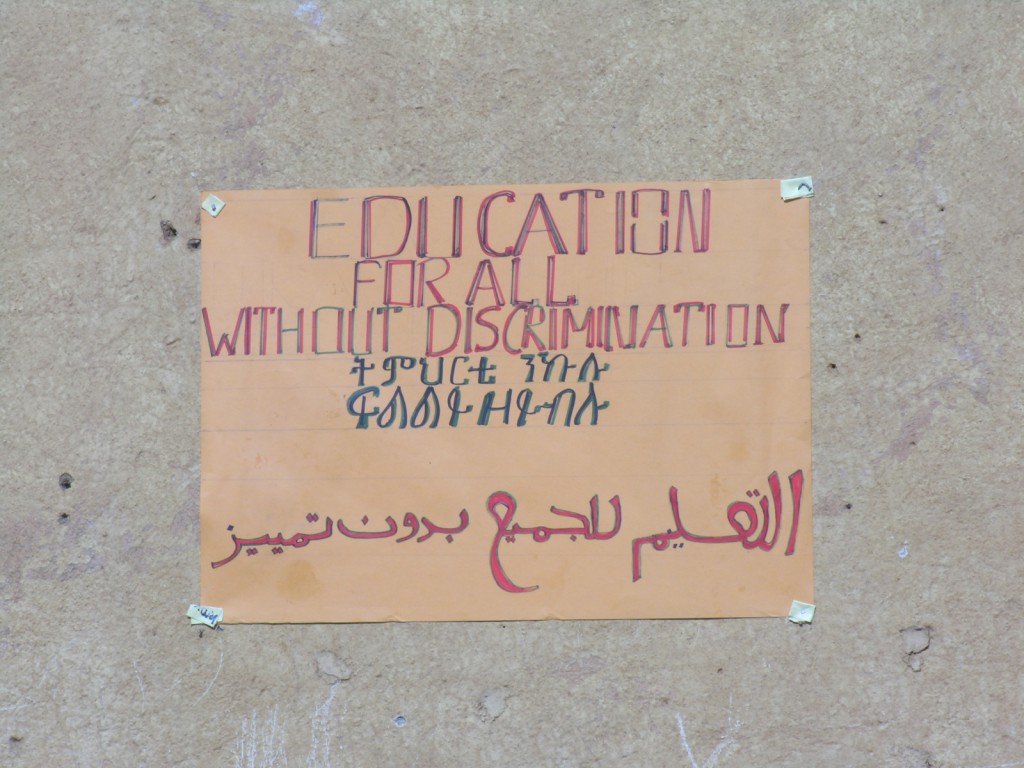 EDUCATION
FOR ALL
WITHOUT DISCRIMINATION
ትምህርቲ ንኹሉ
ፍልልይ ዘይብሉ
التعليم للجميع بدون تمييز